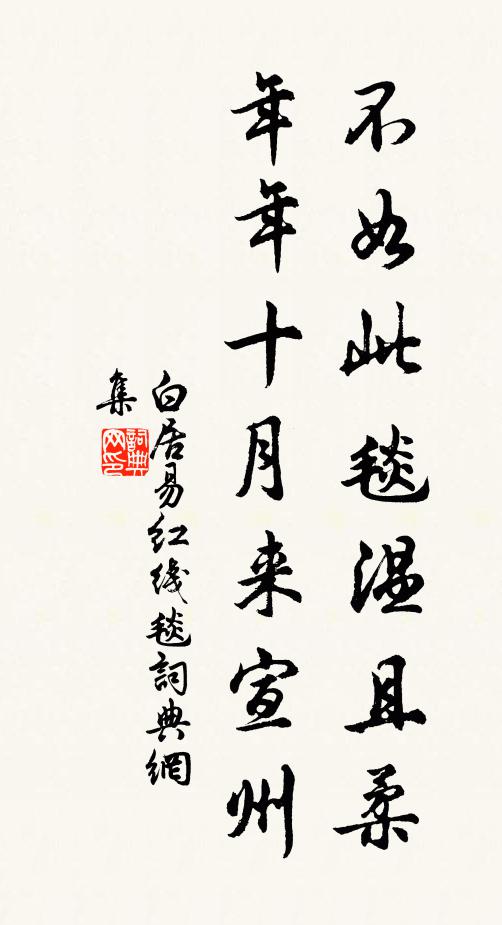 不如此毯温且柔
年年十月来宣州
白居易红线毯詞典網
集
詞典
网印